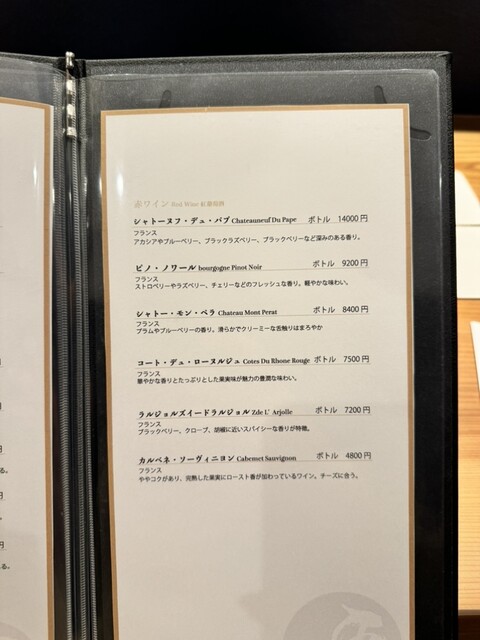 赤ワイン Red Wine 紅葡萄酒
シャトーヌフ・デュ・パプ Chateauneuf Du Pape ボトル 14000円
フランス
アカシアやブルーベリー、ブラックラズベリー、ブラックベリーなど深みのある香り。
ピノ・ノワール bourgogne Pinot Noir ボトル 9200円
フランス
ストロベリーやラズベリー、チェリーなどのフレッシュな香り。軽やかな味わい。
シャトー・モン・ペラ Chateau Mont Perat ボトル 8400円
フランス
プラムやブルーベリーの香り。滑らかでクリーミーな舌触りはまろやか
コート・デュ・ローヌルジュ Cotes Du Rhone Rouge ボトル 7500円
フランス
華やかな香りとたっぷりとした果実味が魅力の豊潤な味わい。
ラルジョルズイードラルジョル Zde L' Arjolle ボトル 7200円
フランス
ブラックベリー、クローブ、胡椒に近いスパイシーな香りが特徴。
カルベネ・ソーヴィニヨン Cabernet Sauvignon ボトル 4800円
フランス
ややコクがあり、完熟した果実にロースト香が加わっているワイン。チーズに合う。
円
円
る。
円
円
る。